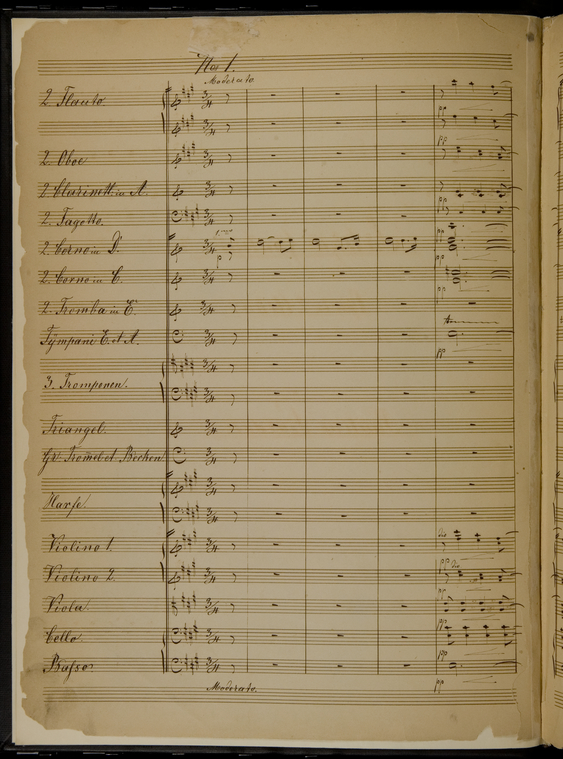 No. 1.
Moderato
2. Flauto
2. Oboe
2 Clarinett. in A.
2. Fagotto.
2. Corno in D.
2. Corno in E.
2. Tromba in E.
Tympani E. et A.
3. Tromponen.
Triangel.
Gr. Trom̄el et Becken
Harfe.
Violino 1.
Violino 2.
Viola.
Cello.
Basso
Moderato.
pp
pp
pp
pp
p
pp
pp
pp
pp
pp
pp
pp
pp